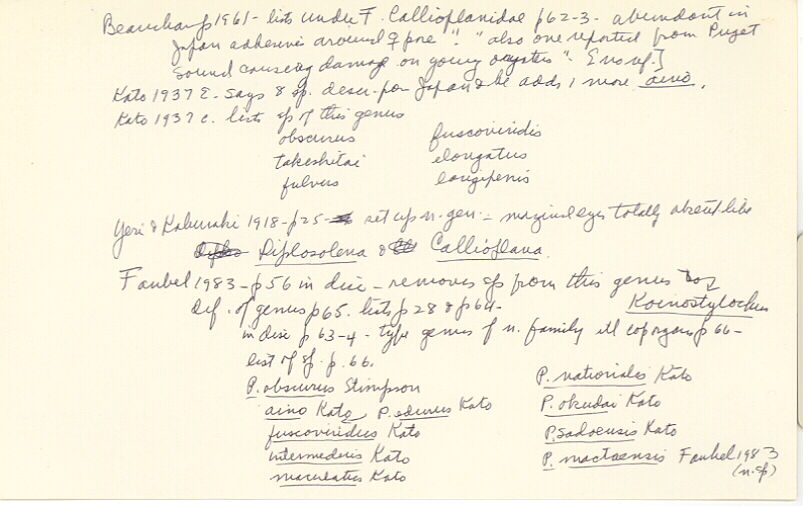 Beauchamp 1961 - lists under F. Callioplanidae p62-3 - abundant in
Japan adhesives around ♀ pore ". "also one reported from Puget
Sound causing damage on young oysters". E no ref.]
Kato 1937 E. says 8 sp. descr. for Japan & he adds 1 more aino.
Kato 1937 c. lists sp of this genus
obscurus fuscoviridis
takeshitai elongatus
fulvus longipenis
Yeri & Kaburaki 1918 - p25 - set up n. gen. - marginal eyes totally absent like
Diplosolena & Callioplana.
Faubel 1983 - p56 in disc - removes sp from this genus to
Def. of genus p65. lists p28 & p64 - Koinostylochus
in disc p 63-4 - type genus of n. family ill cop organs p66 -
list of sp. p.66.
P. obscurus Stimpson P. nationalis Kato
aino Kato P. edurus Kato P. okudai Kato
fuscoviridus Kato P. sadoensis Kato
intermedius Kato P. mactaensis Faubel 1983
maculatus Kato (n. sp)